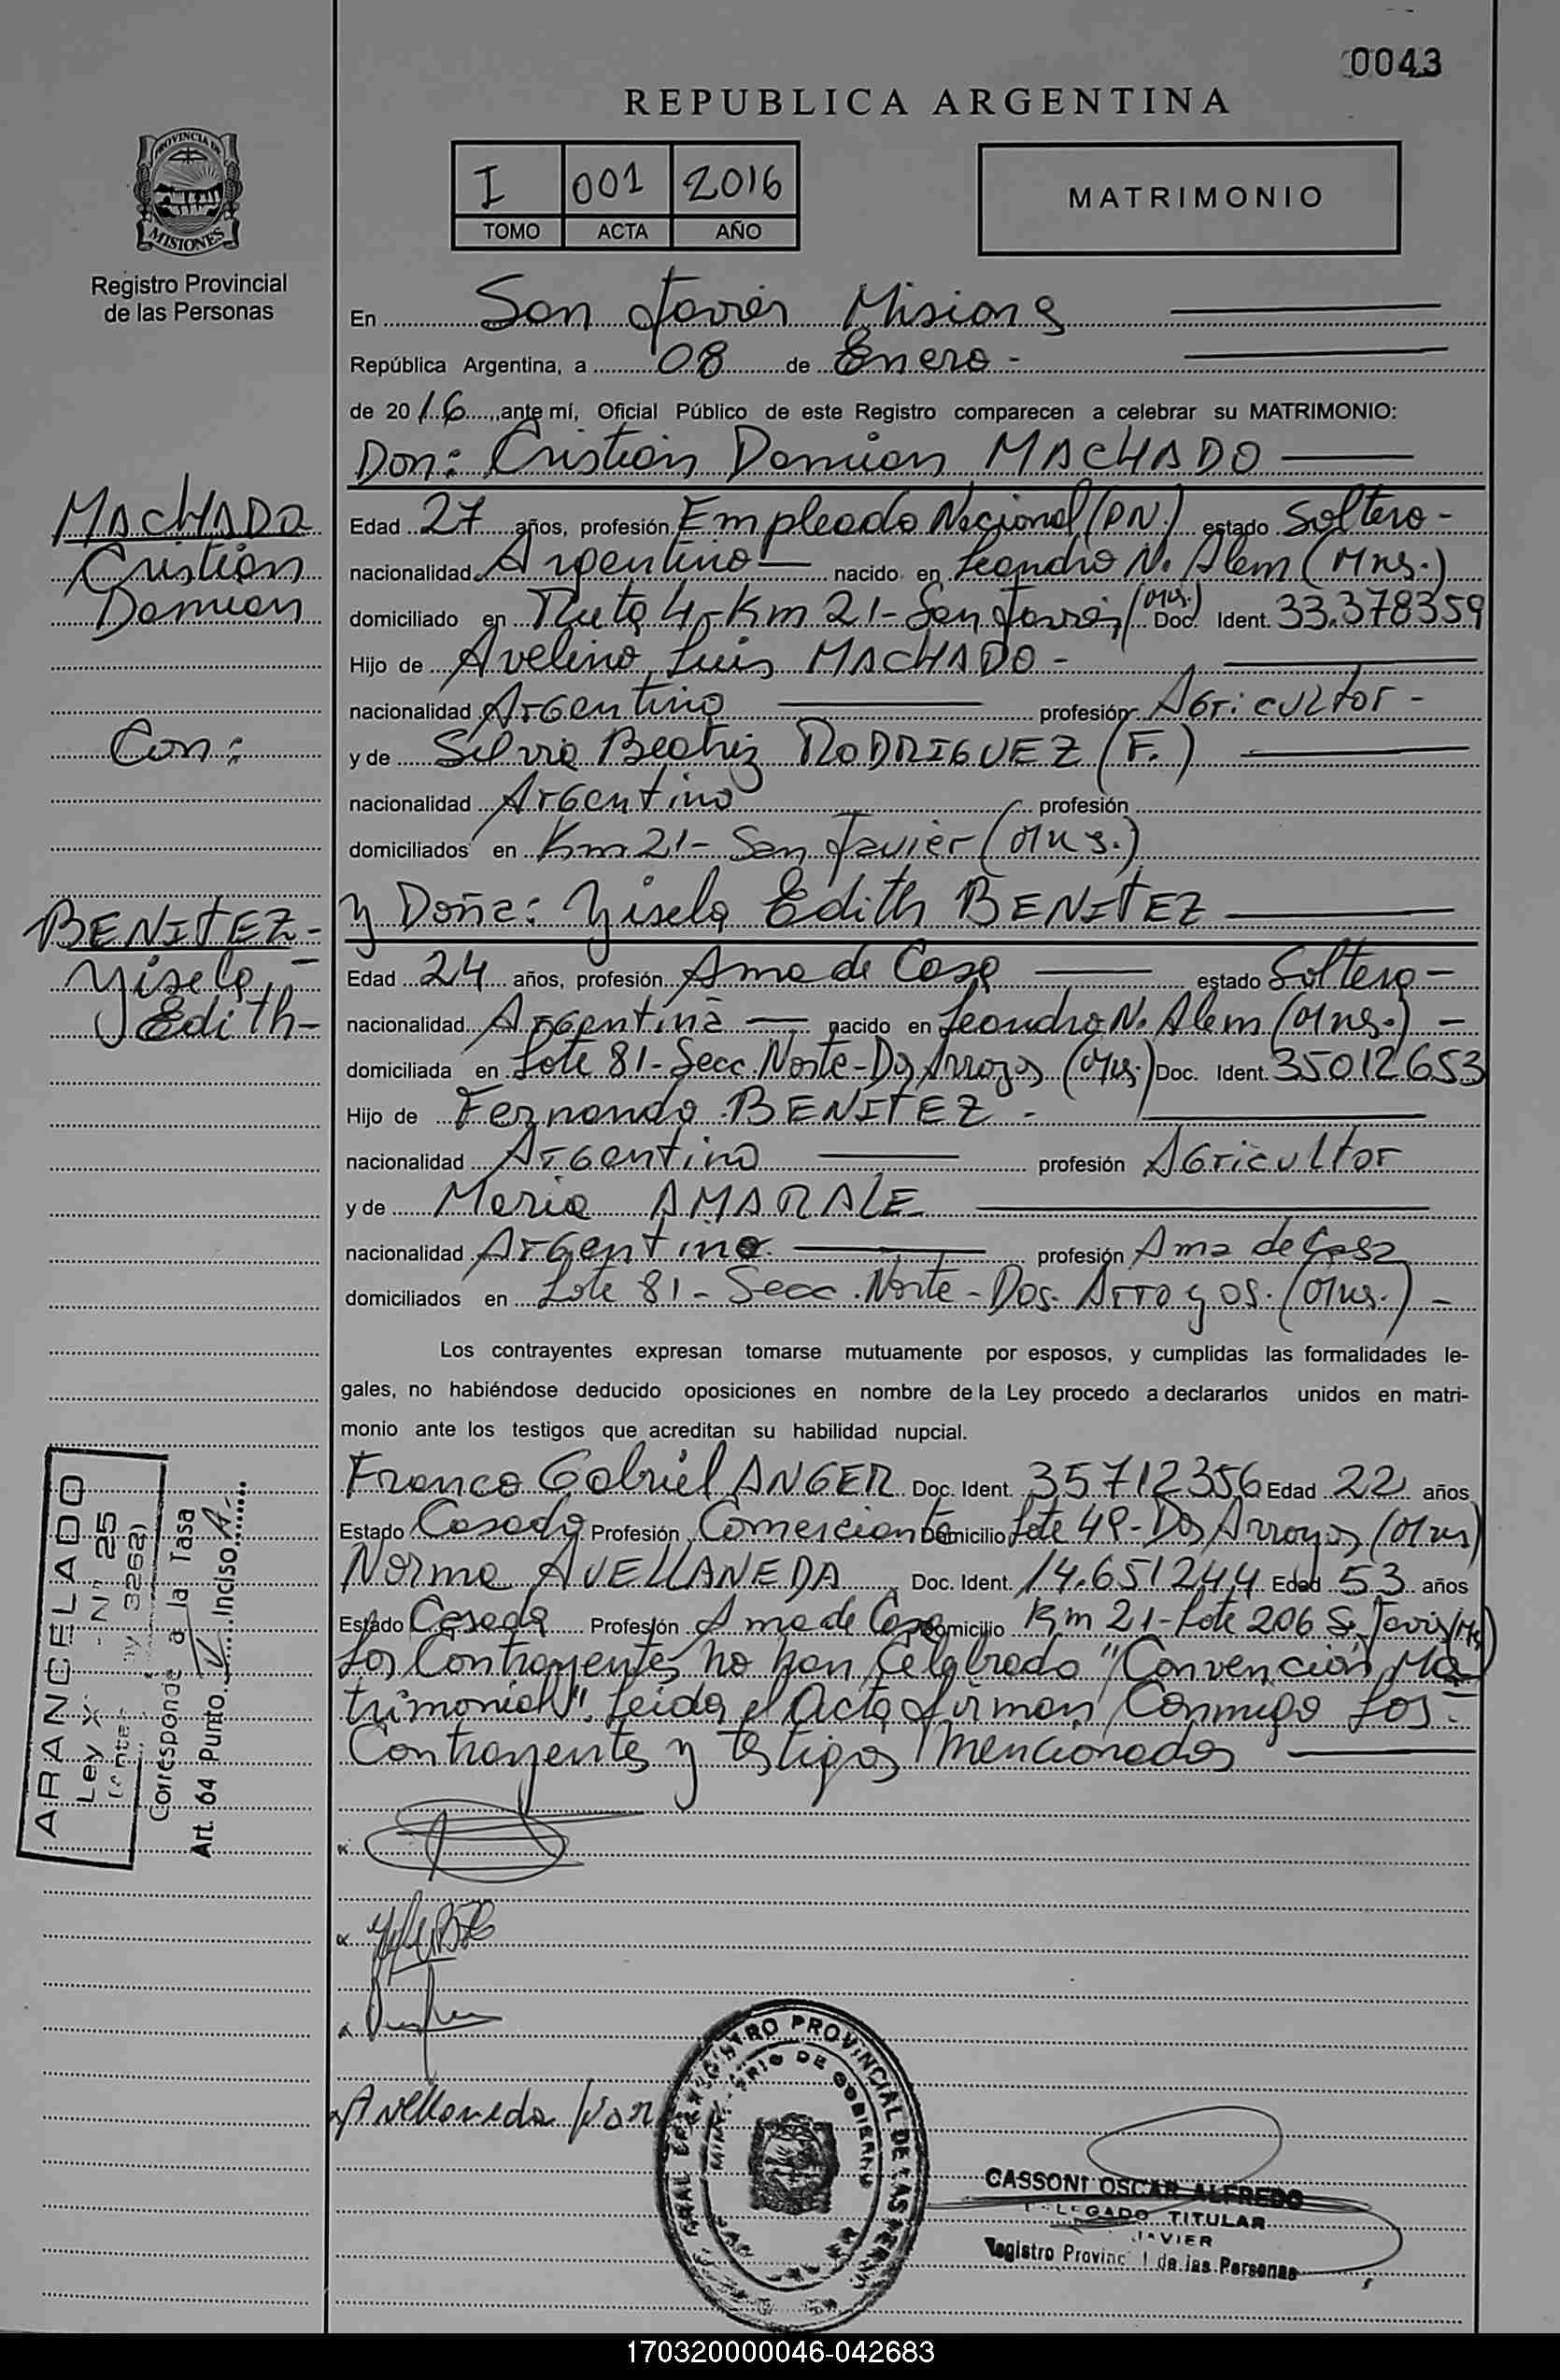 0043
REPUBLICA ARGENTINA
PROVINCIA DE
MISIONES
Registro Provincial
de las Personas
I 001 2016
TOMO ACTA AÑO
MATRIMONIO
En San Javier Misiones
República Argentina, a 08 de Enero -
de 20 16 ante mí, Oficial Público de este Registro comparecen a celebrar su MATRIMONIO:
Don: Cristian Damian MACHADO
MACHADO
Cristian
Damian
Con:
BENITEZ-
Yisela
Edith-
Edad 27 años, profesión Empleado Nacional (PN.) estado Soltero-
nacionalidad Argentino nacido en Leandro N. Alem (Mns.)
domiciliado en Ruta 4-Km 21-San Javier (Mns.) Doc. Ident. 33.378359
Hijo de Avelino Luis MACHADO -
nacionalidad Argentino profesión Agricultor -
y de Silvia Beatriz RODRIGUEZ (F.)
nacionalidad Argentina profesión
domiciliados en Km 21- San Javier (Mns.)
y Doña: Yisela Edith BENITEZ
Edad 24 años, profesión Ama de Casa estado Soltera-
nacionalidad Argentina nacido en Leandro N. Alem (Mns.) -
domiciliada en Lote 81-Secc. Norte-Dos Arroyos (Mns.) Doc. Ident. 35012653
Hijo de Fernando BENITEZ -
nacionalidad Argentino profesión Agricultor
y de Maria AMARALE
nacionalidad Argentina profesión Ama de Casa
domiciliados en Lote 81- Secc. Norte - Dos Arroyos. (Mns.) -
Los contrayentes expresan tomarse mutuamente por esposos, y cumplidas las formalidades le-
gales, no habiéndose deducido oposiciones en nombre de la Ley procedo a declararlos unidos en matri-
monio ante los testigos que acreditan su habilidad nupcial.
Franco Gabriel ANGER Doc. Ident. 35712356 Edad 22 años
Estado Casado Profesión Comerciante Domicilio Lote 49-Dos Arroyos (Mns)
Norma AVELLANEDA Doc. Ident. 14.651244 Edad 53 años
Estado Casada Profesión Ama de Casa Domicilio Km 21-Lote 206 S. Javier (Ms)
Los Contrayentes no han Celebrado "Convención Ma
trimonial". Leida el Acta firman Conmigo Los-
Contrayentes y testigos mencionados
ARANCELADO
Ley X - Nº 25
3262)
Corresponde a la Tasa
Art. 64 Punto Inciso A
Avellaneda Nor
REGISTRO PROVINCIAL DE LAS PERSONAS
MINISTERIO DE GOBIERNO
CASSONI OSCAR ALFREDO
TITULAR
JAVIER
Registro Provincial de las Personas
170320000046-042683